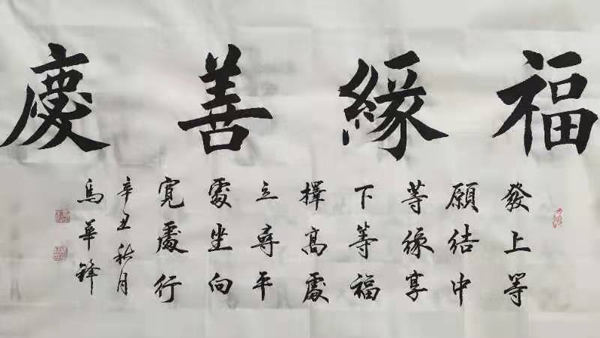 福緣善慶
發上等
願結中
等緣享
下等福
擇高處
立尋平
處坐向
寬處行
辛丑秋月
馬華鋒